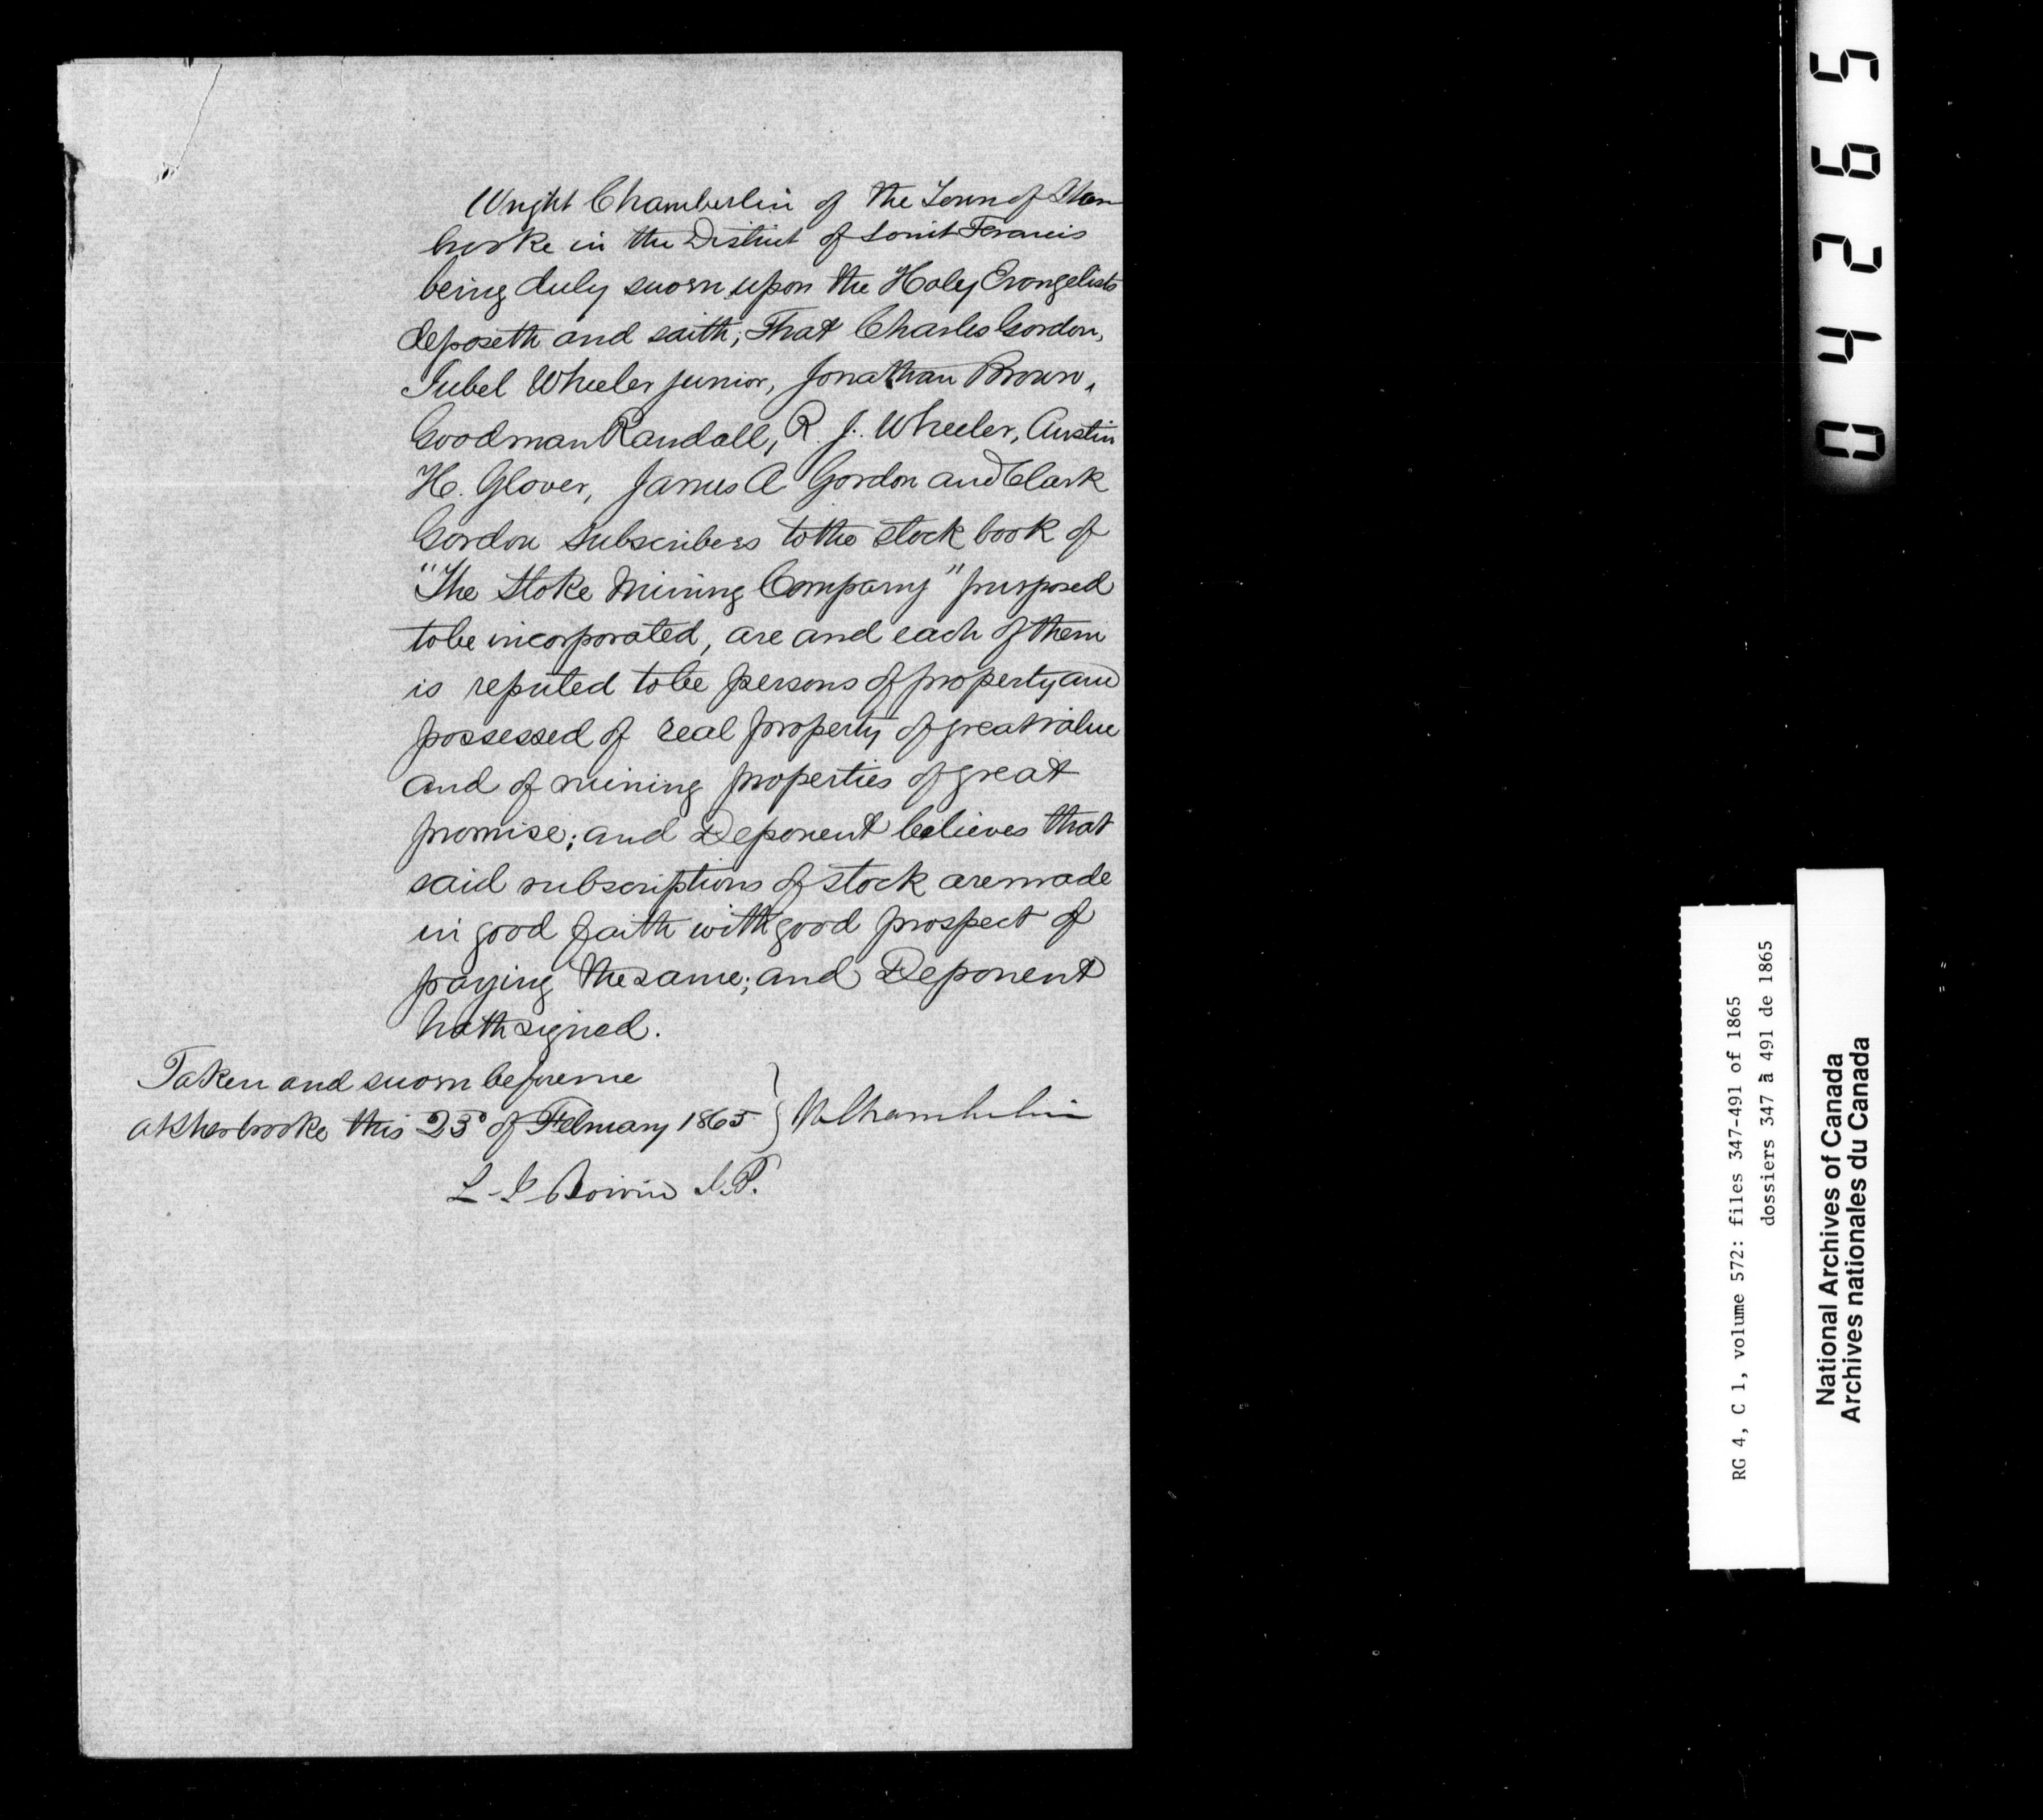 Wright Chamberlin of the Town of Sher
brooke in the District of Saint Francis
being duly sworn upon the Holy Evangelists
deposeth and saith; That Charles Gordon,
Tubel Wheeler junior, Jonathan Brown,
Goodman Randall, R. J. Wheeler, Austin
H. Glover, James A Gordon and Clark
Gordon subscribers to the stock book of
"The Stoke Mining Company" purposed
to be incorporated, are and each of them
is reputed to be persons of property and
possessed of real property of great value
and of mining properties of great
promise; and Deponent believes that
said subscriptions of stock are made
in good faith with good prospect of
paying the same; and Deponent
hath signed.
Taken and sworn before me
at Sherbrooke this 23d of February 1865 } W Chamberlin
Boivin J.P.
04265
RG 4, C 1, volume 572: files 347-491 of 1865
dossiers 347 à 491 de 1865
National Archives of Canada
Archives nationales du Canada